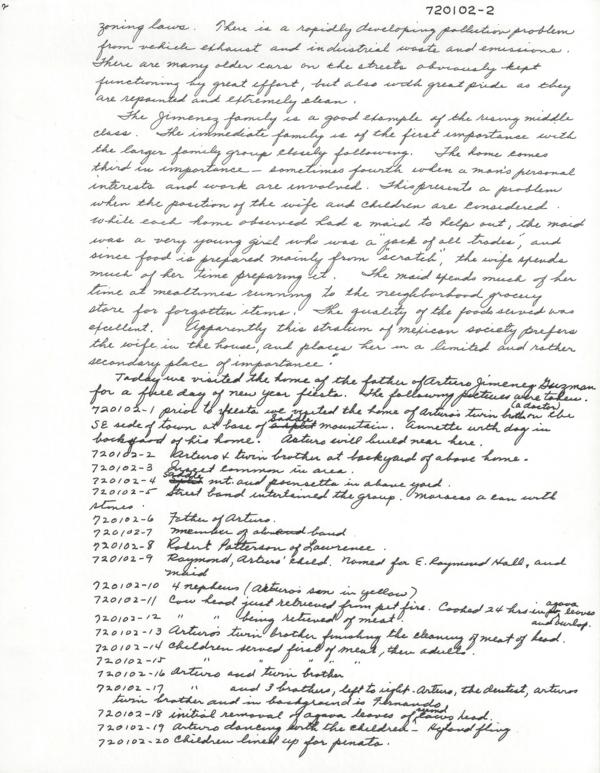 720102-2
zoning laws. There is a rapidly developing pollution problem
from vehicle exhaust and industrial waste and emissions.
There are many older cars on the streets obviously kept
functioning by great effort, but also with great pride as they
are repainted and extremely clean.
The Jimenez family is a good example of the rising middle
class. The immediate family is of the first importance with
the larger family group closely following. The home comes
third in importance — sometimes fourth when a man's personal
interests and work are involved. This presents a problem
when the position of the wife and children are considered.
While each home observed had a maid to help out, the maid
was a very young girl who was a "jack of all trades", and
since food is prepared mainly from "scratch", the wife spends
much of her time preparing it. The maid spends much of her
time at mealtimes running to the neighborhood grocery
store for forgotten items. The quality of the foods served was
excellent. Apparently this stratum of mexican society prefers
the wife in the house, and places her in a limited and rather
secondary place of importance."
Today we visited the home of the father of Arturo Jimenez Guzman
for a full day of new year fiesta. The following pictures were taken.
720102-1 prior to fiesta we visited the home of Arturo's twin brother (a doctor) on the
SE side of town at base of Saddle mountain. Annette with dog in
backyard of his home. Arturo will build near here.
720102-2 Arturo & twin brother at backyard of above home.
720102-3 common in area.
720102-4 Saddle mt. and poinsetta in above yard.
720102-5 Street band intertained the group. Maracas a can with
stones.
720102-6 Father of Arturo.
720102-7 member of above band
720102-8 Robert Patterson of Lawrence.
720102-9 Raymond, Arturo's child. Named for E. Raymond Hall, and
maid
720102-10 4 nephews (Arturo's son in yellow)
720102-11 Cow head just retrieved from pit fire. Cooked 24 hrs in agava leaves
and burlap.
720102-12 " " being retieved of meat.
720102-13 Arturo's twin brother finishing the cleaning of meat of head.
720102-14 Children served first of meat, then adults.
720102-15 " " " " "
720102-16 Arturo and twin brother
720102-17 " and 3 brothers, left to right - Arturo, the dentist, arturos
twin brother and in background is Fernando
720102-18 initial removal of agava leaves of cows head.
720102-19 Arturo dancing with the children - fling
720102-20 Children lined up for pinata.